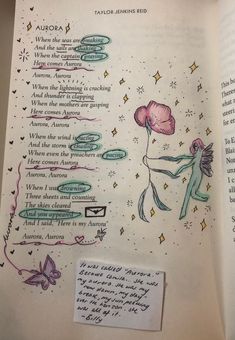 TAYLOR JENKINS REID
AURORA
When the seas are breaking
And the sails are shaking
When the captain's praying
Here comes Aurora
Aurora, Aurora
When the lightning is cracking
And thunder is clapping
When the mothers are gasping
Here comes Aurora
Aurora, Aurora
When the wind is racing
And the storm is chasing
When even the preachers are pacing
Here comes Aurora
Aurora, Aurora
When I was drowning
Three sheets and counting
The skies cleared
And you appeared
And I said, "Here is my Aurora"
Aurora, Aurora
It was called "Aurora"
because Camila... She was
my aurora. She was my
new dawn, my day-
break, my sun peeking
over the horizon. She
was all of it.
-Billy